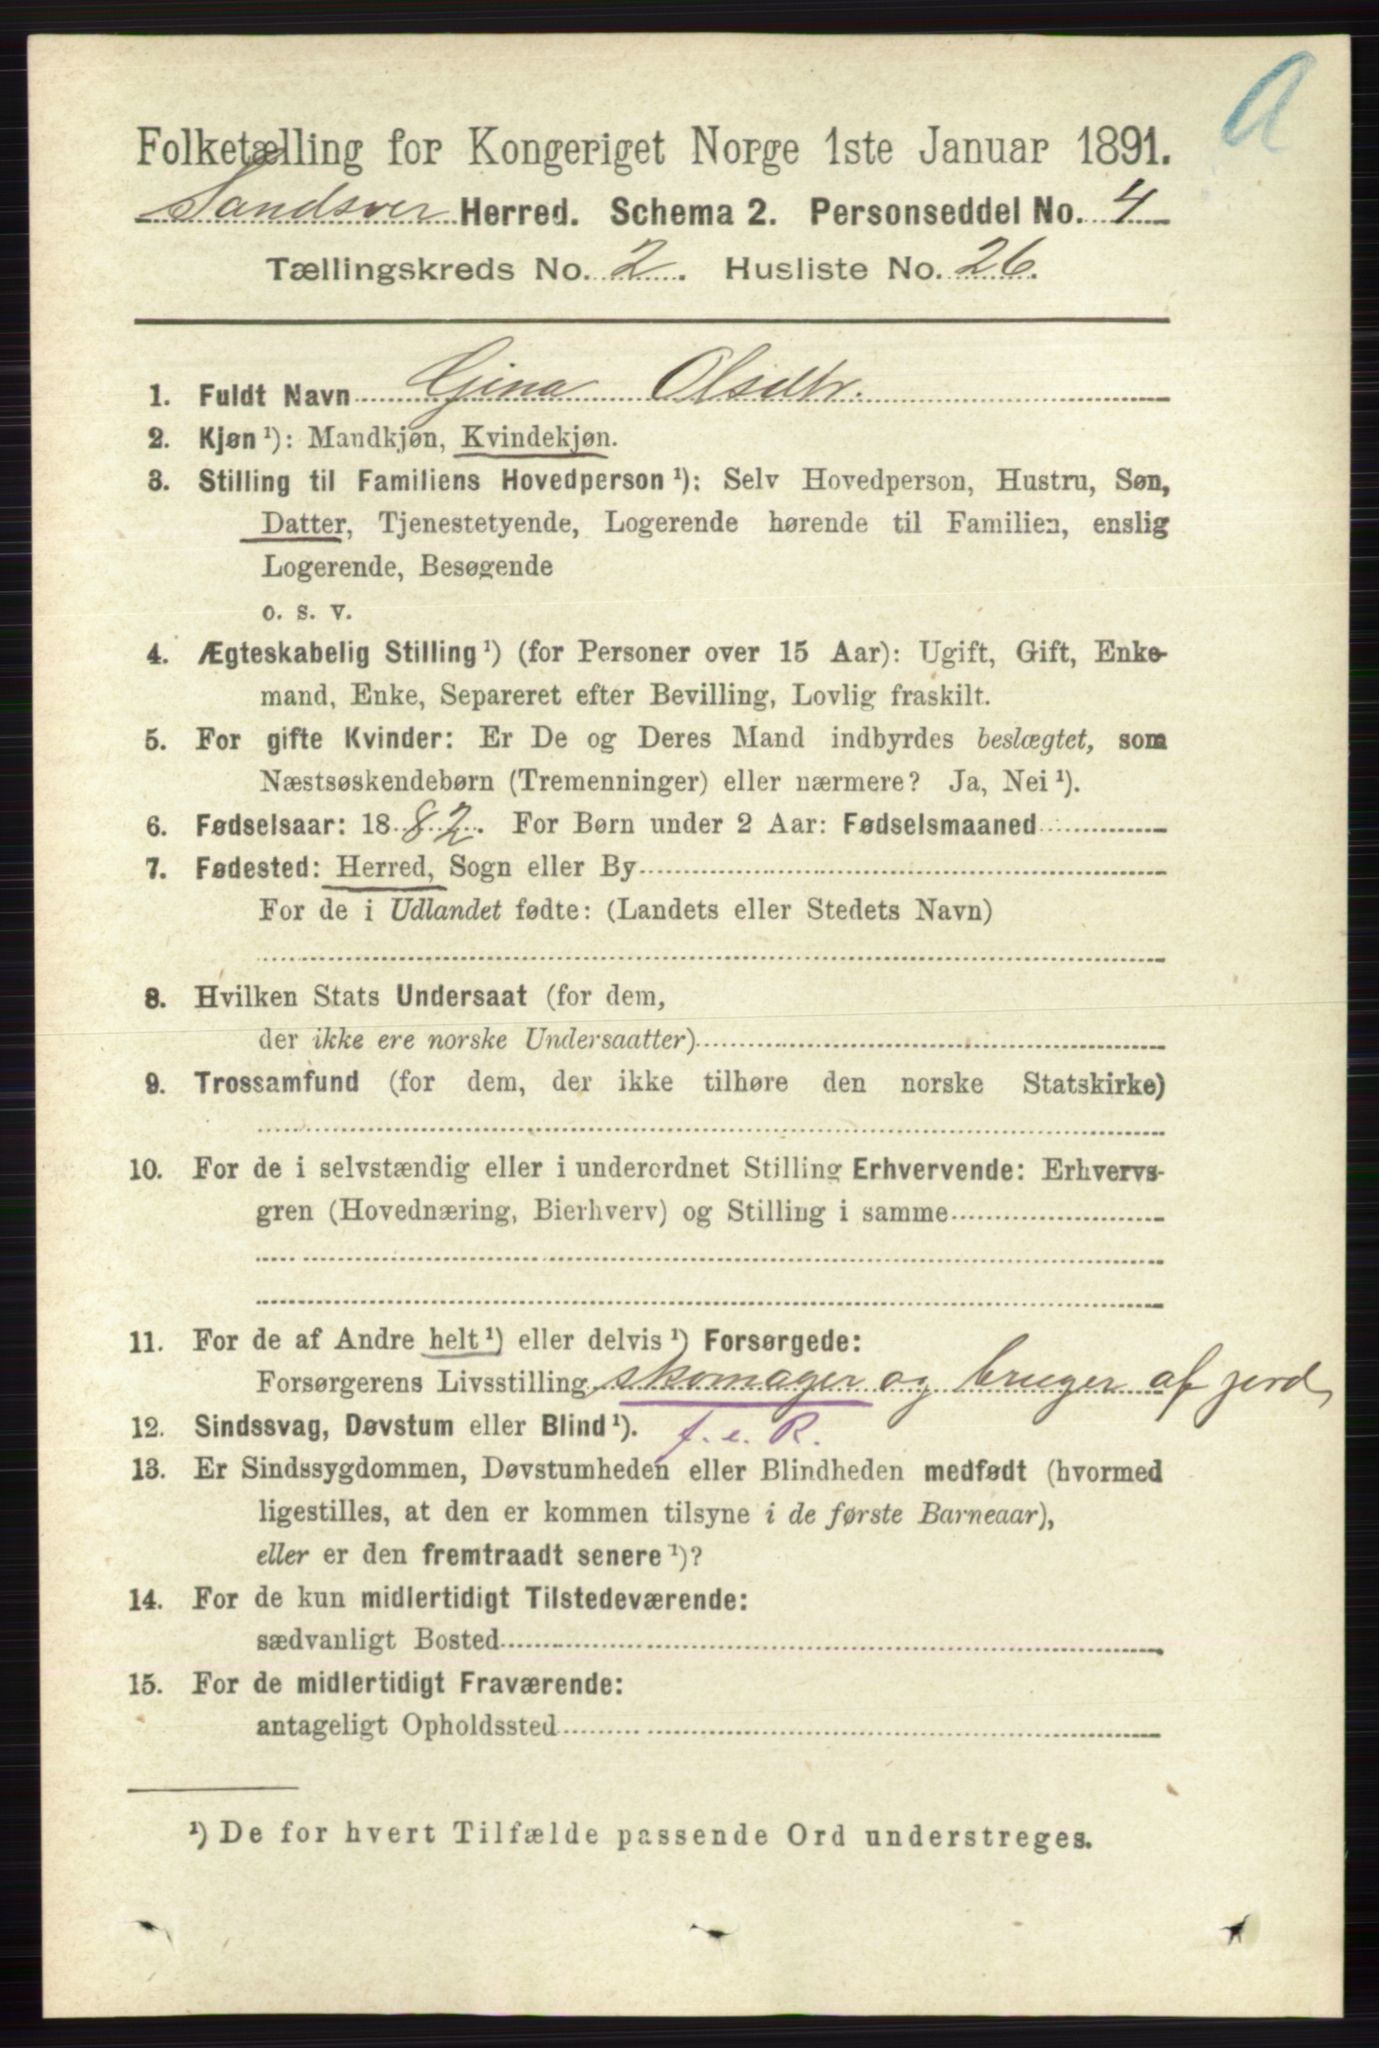 A
Folketælling for Kongeriget Norge 1ste Januar 1891.
Sandsver Herred. Schema 2. Personseddel No. 4
Tællingskreds No. 2. Husliste No. 26.
1. Fuldt Navn Gina Olsdtr.
2. Kjøn ¹): Mandkjøn, Kvindekjøn.
3. Stilling til Familiens Hovedperson ¹): Selv Hovedperson, Hustru, Søn,
Datter, Tjenestetyende, Logerende hørende til Familien, enslig
Logerende, Besøgende
o. s. v.
4. Ægteskabelig Stilling ¹) (for Personer over 15 Aar): Ugift, Gift, Enke-
mand, Enke, Separeret efter Bevilling, Lovlig fraskilt.
5. For gifte Kvinder: Er De og Deres Mand indbyrdes beslægtet, som
Næstsøskendebørn (Tremenninger) eller nærmere? Ja, Nei ¹).
6. Fødselsaar: 1882. For Børn under 2 Aar: Fødselsmaaned
7. Fødested: Herred, Sogn eller By
For de i Udlandet fødte: (Landets eller Stedets Navn)
8. Hvilken Stats Undersaat (for dem,
der ikke ere norske Undersaatter)
9. Trossamfund (for dem, der ikke tilhøre den norske Statskirke)
10. For de i selvstændig eller i underordnet Stilling Erhvervende: Erhvervs-
gren (Hovednæring, Bierhverv) og Stilling i samme
11. For de af Andre helt ¹) eller delvis ¹) Forsørgede:
Forsørgerens Livsstilling skomager og bruger af jord,
12. Sindssvag, Døvstum eller Blind ¹). f. e. R.
13. Er Sindssygdommen, Døvstumheden eller Blindheden medfødt (hvormed
ligestilles, at den er kommen tilsyne i de første Barneaar),
eller er den fremtraadt senere ¹)?
14. For de kun midlertidigt Tilstedeværende:
sædvanligt Bosted
15. For de midlertidigt Fraværende:
antageligt Opholdssted
¹) De for hvert Tilfælde passende Ord understreges.